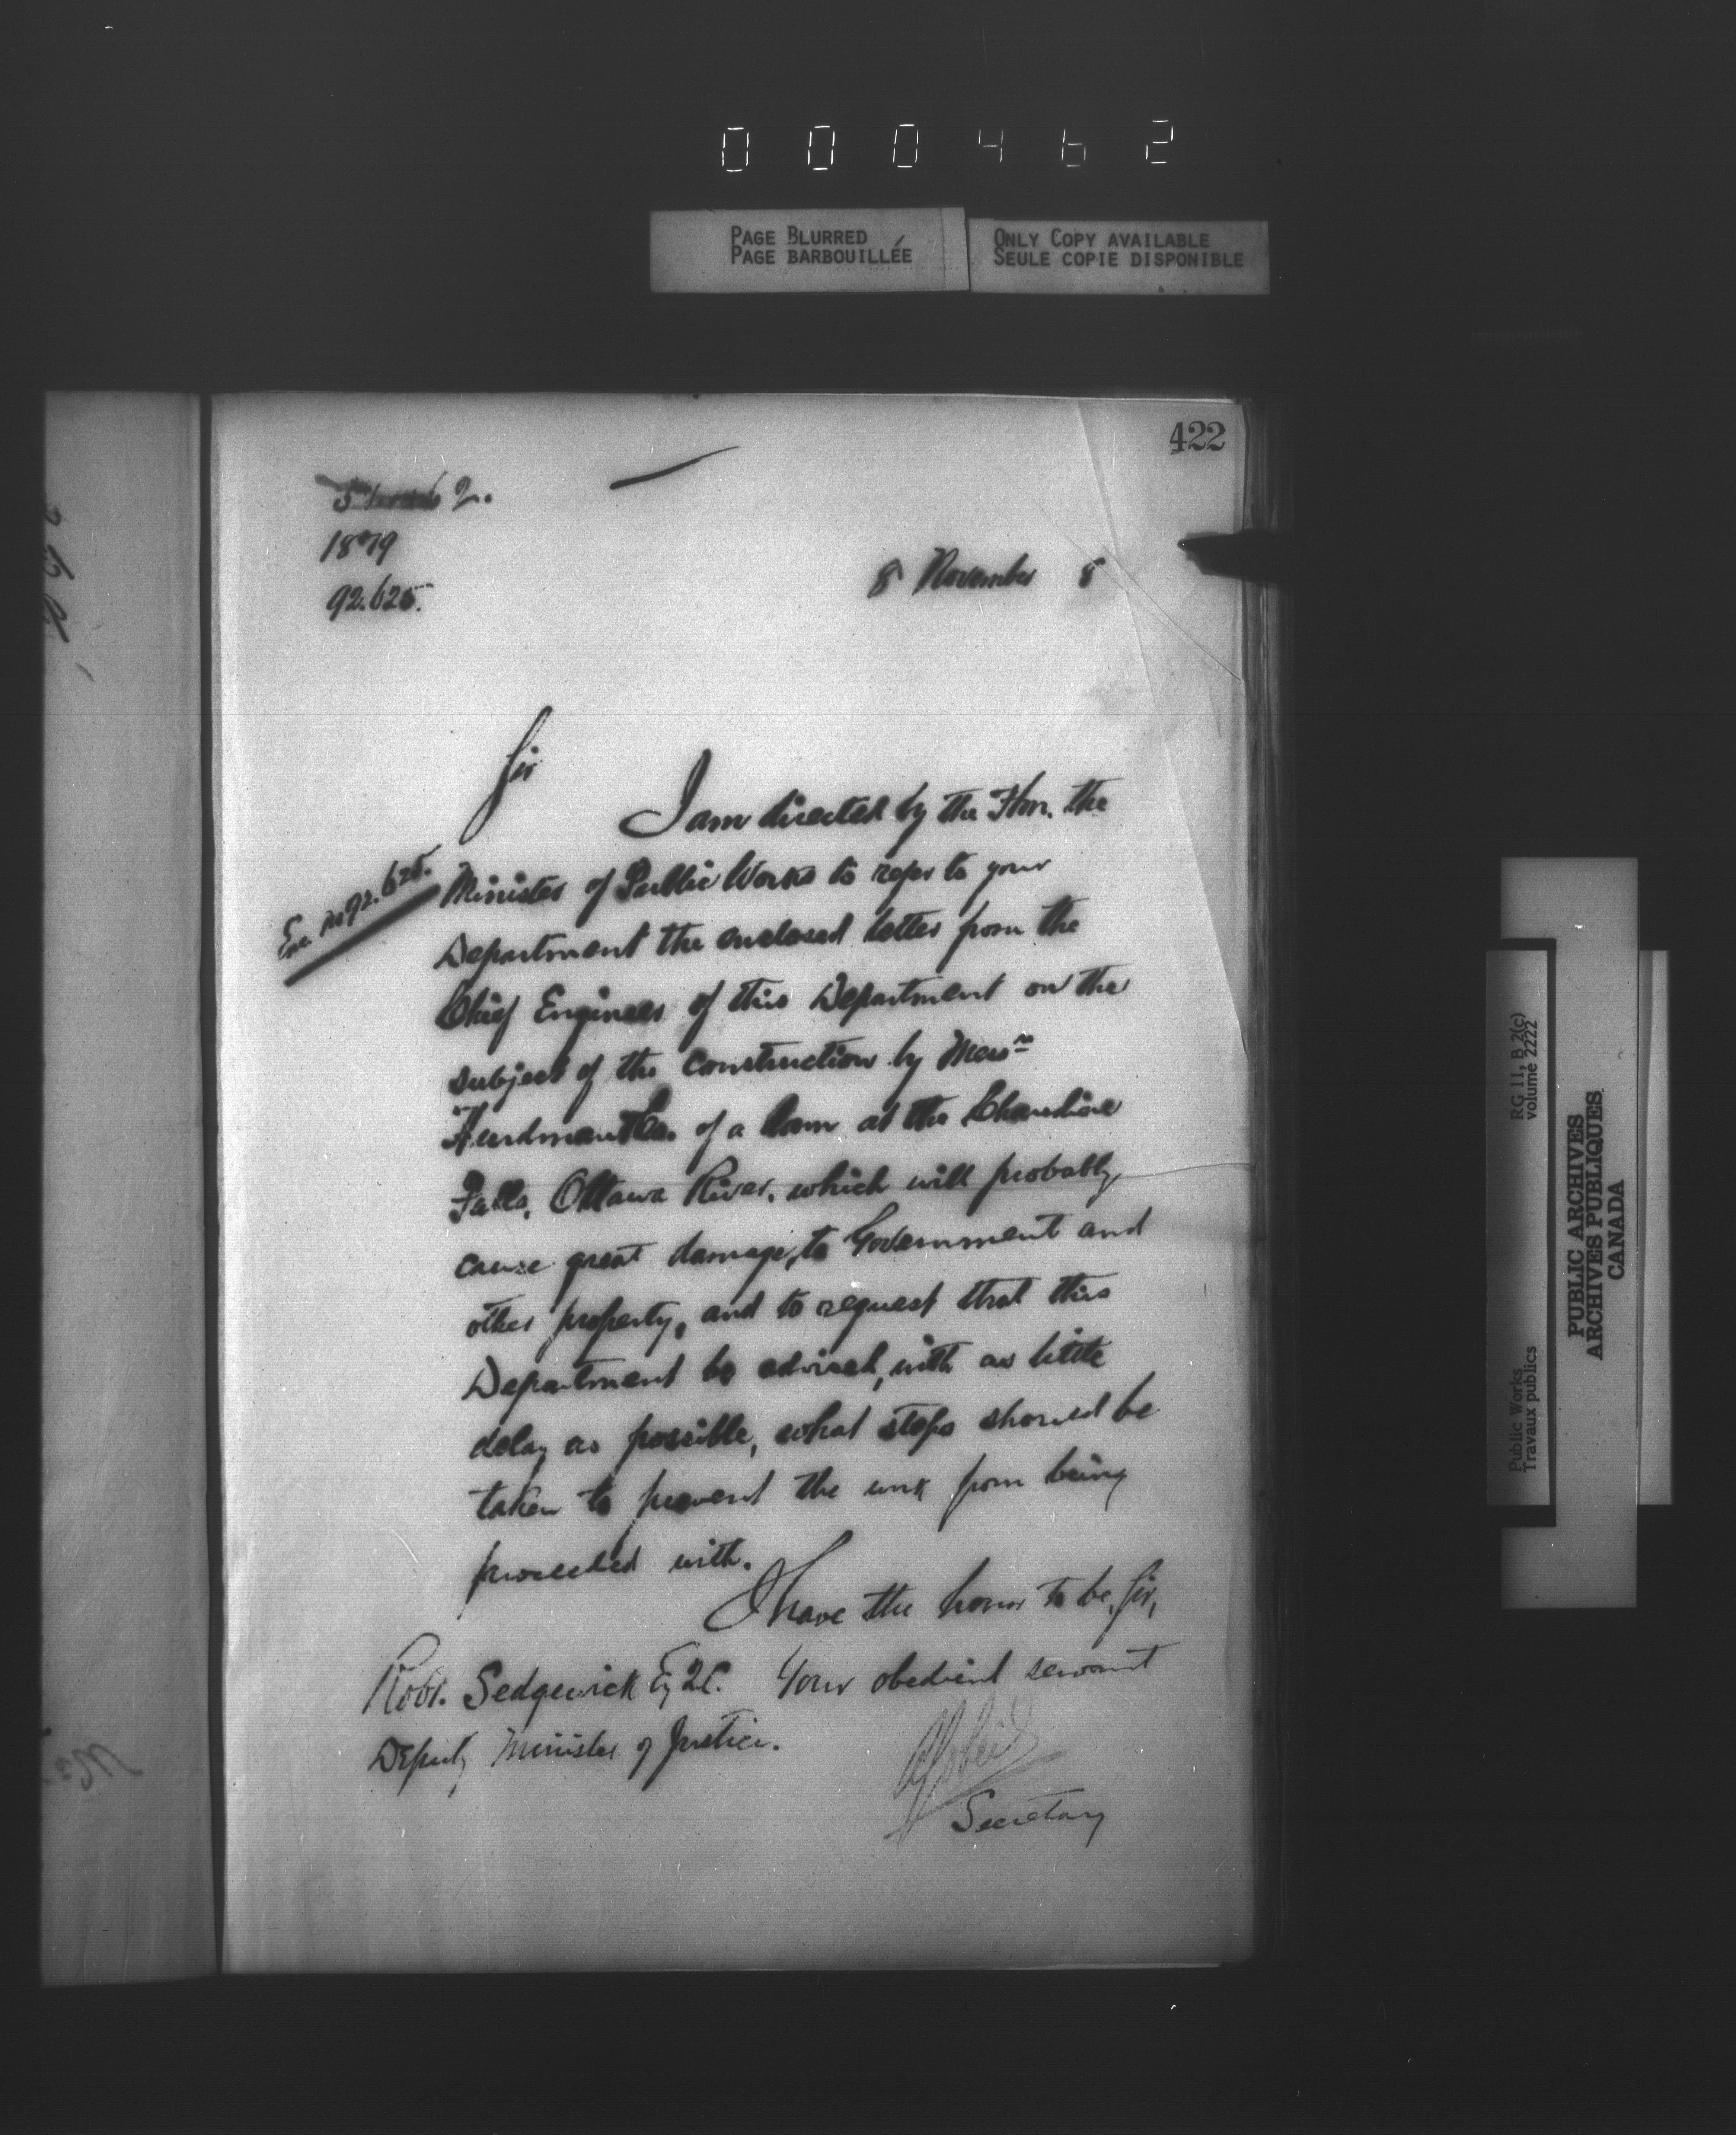 000462
PAGE BLURRED
PAGE BARBOUILLÉE
ONLY COPY AVAILABLE
SEULE COPIE DISPONIBLE
422
2.
1879
92.625.
8 November 8
Sir
I am directed by the Hon. the
Minister of Public Works to refer to your
Enc. No 92.625.
Department the enclosed letter from the
Chief Engineer of this Department on the
subject of the construction by Messrs
Hurdman & Co. of a dam at the Chaudière
Falls, Ottawa River, which will probably
cause great damage, to Government and
other property, and to request that this
Department be advised, with as little
delay as possible, what steps should be
taken to prevent the work from being
proceeded with.
I have the honor to be, Sir,
Your obedient servant
Robt. Sedgewick Esq Q.C.
Deputy Minister of Justice.
Secretary
Public Works
Travaux publics
RG 11, B 2(c)
volume 2222
PUBLIC ARCHIVES
ARCHIVES PUBLIQUES
CANADA